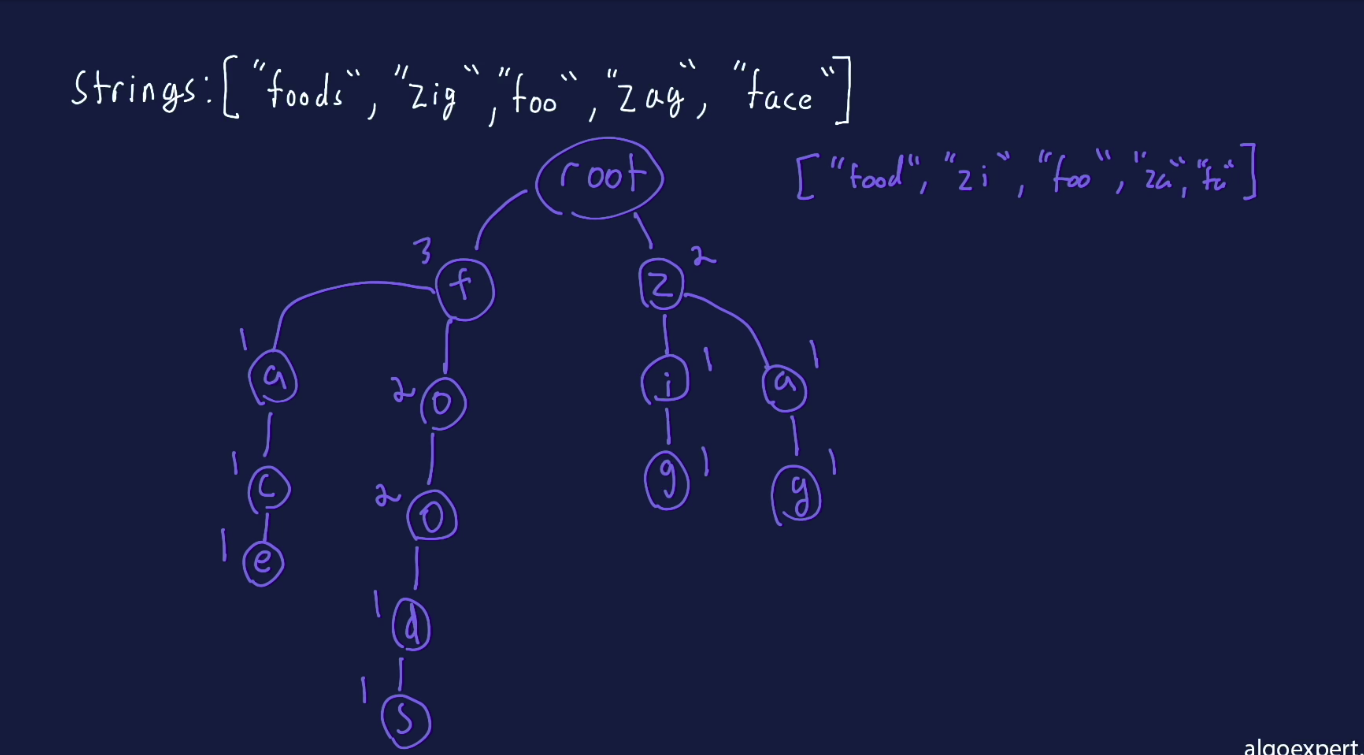 Strings: ["foods", "zig", "foo", "zag", "face"]
root
["food", "zi", "foo", "za", "fa"]
3
f
z
2
1
a
2
o
i
1
a
1
1
c
2
o
g
1
g
1
1
e
1
d
1
s
algoexpert